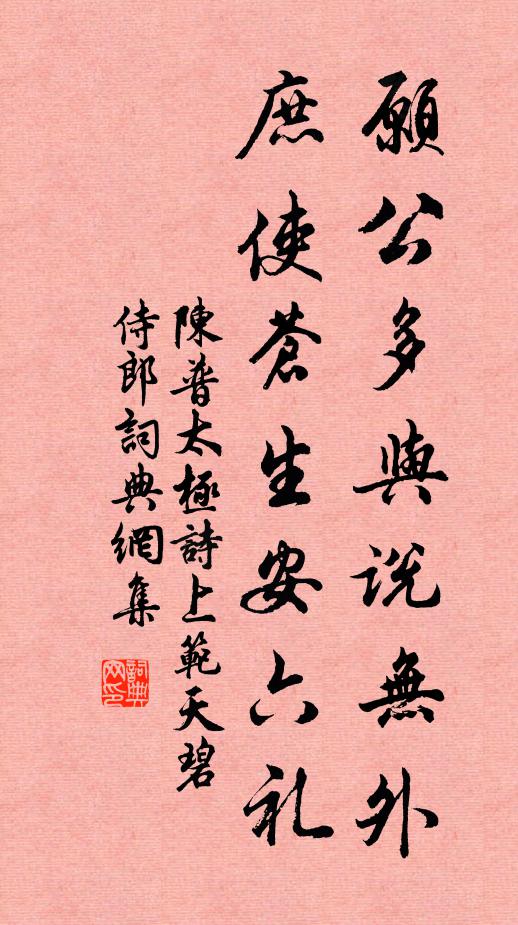 願公多與説無外
庶使蒼生安六礼
陳普太極詩上範天碧
侍郎詞典網集
詞典網印